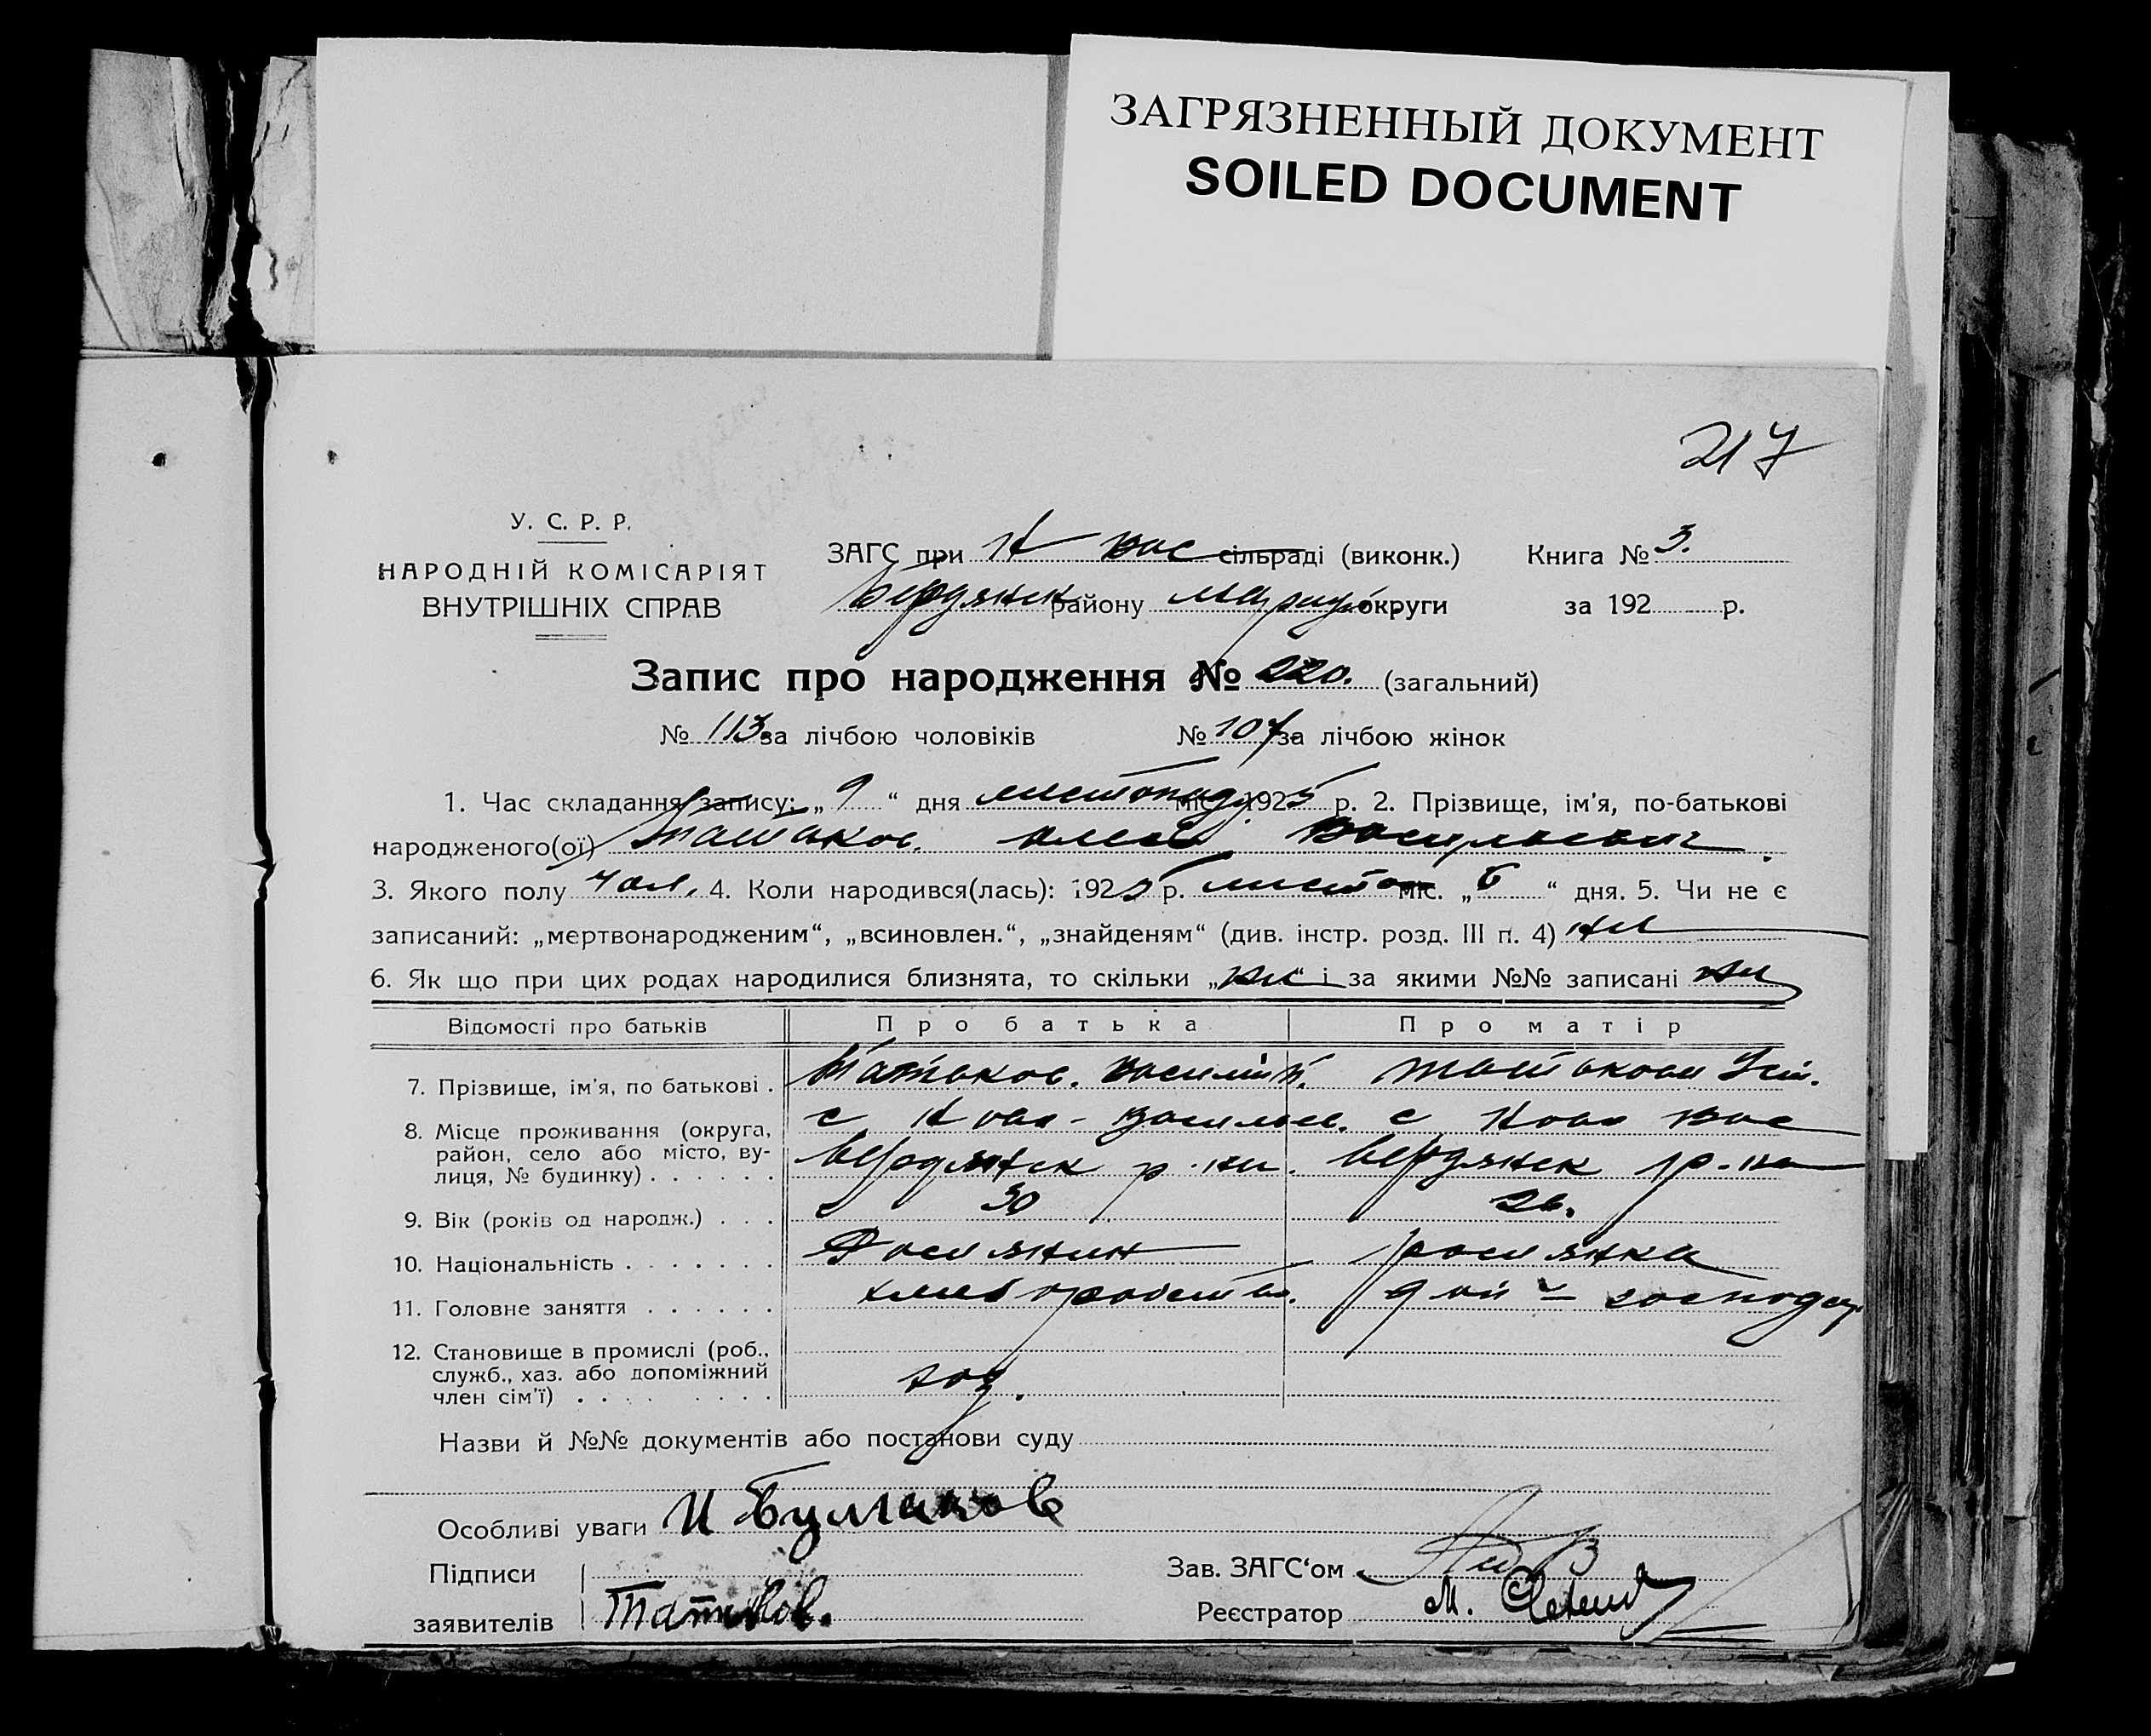 ЗАГРЯЗНЕННЫЙ ДОКУМЕНТ
SOILED DOCUMENT
217
У. С. Р. Р.
НАРОДНІЙ КОМІСАРІЯТ
ВНУТРІШНІХ СПРАВ
ЗАГС при Н Вас сільраді (виконк.) Книга № 3.
Бердянськ району Маріуп. округи за 192 р.
Запис про народження № 220. (загальний)
№ 113 за лічбою чоловіків № 107 за лічбою жінок
1. Час складання запису: „ 9 “ дня листопаду міс. 1925 р. 2. Прізвище, ім'я, по-батькові
народженого(ої) Татьков. Васильевич
3. Якого полу чол. 4. Коли народився(лась): 1925 р. листоп міс. „ 6 “ дня. 5. Чи не є
записаний: „мертвонародженим“, „всиновлен.“, „знайденям“ (див. інстр. розд. III п. 4) ні
6. Як що при цих родах народилися близнята, то скільки „ ні “ і за якими №№ записані ні
Відомості про батьків Про батька Про матір
7. Прізвище, ім'я, по батькові . Татьков. Василій. Татькова
8. Місце проживання (округа, с Ново-Васильев. с Ново Вас
район, село або місто, вулиця, № будинку) . . . . . . Бердянск р-ни. Бердянск р-на
9. Вік (років од народж.) . . . 30 26.
10. Національність . . . . . . . Росиянин росиянка
11. Головне заняття . . . . . . хлеборобств. дом господар
12. Становище в промислі (роб.,
служб., хаз. або допоміжний
член сім'ї) . . . . . . . . . хоз.
Назви й №№ документів або постанови суду
Особливі уваги И Булгаков
Підписи Зав. ЗАГС‘ом
заявителів Татьков. Реєстратор М.